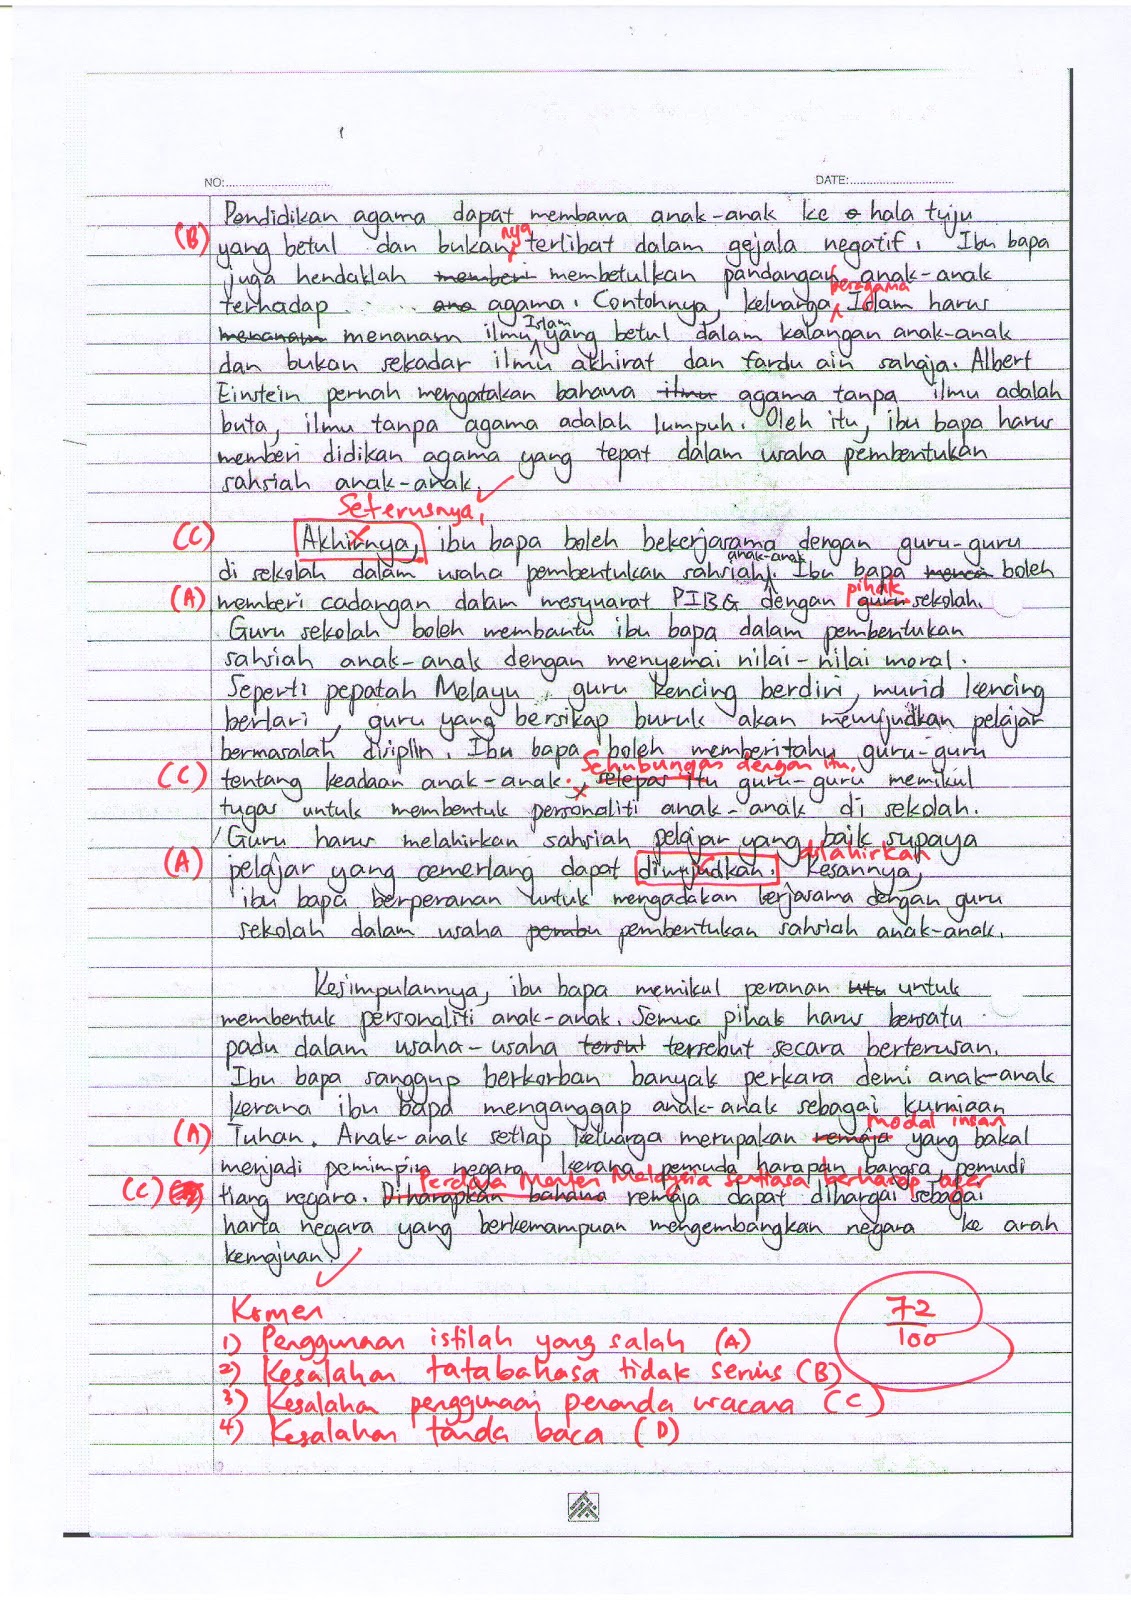 NO:
DATE:
Pendidikan agama dapat membawa anak-anak ke hala tuju
(B) yang betul dan bukan nya terlibat dalam gejala negatif. Ibu bapa
juga hendaklah memberi membetulkan pandangan anak-anak
beragama
terhadap agama. Contohnya, keluarga Islam harus
Islam
menanam menanam ilmu yang betul dalam kalangan anak-anak
dan bukan sekadar ilmu akhirat dan fardu ain sahaja. Albert
Einstein pernah mengatakan bahawa ilmu agama tanpa ilmu adalah
buta, ilmu tanpa agama adalah lumpuh. Oleh itu, ibu bapa harus
memberi didikan agama yang tepat dalam usaha pembentukan
sahsiah anak-anak.
Seterusnya,
(C) Akhirnya, ibu bapa boleh bekerjasama dengan guru-guru
anak-anak
di sekolah dalam usaha pembentukan sahsiah. Ibu bapa boleh
pihak
(A) memberi cadangan dalam mesyuarat PIBG dengan guru sekolah.
Guru sekolah boleh membantu ibu bapa dalam pembentukan
sahsiah anak-anak dengan menyemai nilai-nilai moral.
Seperti pepatah Melayu, guru kencing berdiri, murid kencing
berlari, guru yang bersikap buruk akan mewujudkan pelajar
bermasalah disiplin. Ibu bapa boleh memberitahu guru-guru
Sehubungan dengan itu,
(C) tentang keadaan anak-anak. selepas itu guru-guru memikul
tugas untuk membentuk personaliti anak-anak di sekolah.
Guru harus melahirkan sahsiah pelajar yang baik supaya
dilahirkan
(A) pelajar yang cemerlang dapat diwujudkan. Kesannya,
ibu bapa berperanan untuk mengadakan kerjasama dengan guru
sekolah dalam usaha pembentukan sahsiah anak-anak.
Kesimpulannya, ibu bapa memikul peranan untuk
membentuk personaliti anak-anak. Semua pihak harus bersatu
padu dalam usaha-usaha tersebut secara berterusan.
Ibu bapa sanggup berkorban banyak perkara demi anak-anak
kerana ibu bapa menganggap anak-anak sebagai kurniaan
modal insan
(A) Tuhan. Anak-anak setiap keluarga merupakan remaja yang bakal
menjadi pemimpin negara kerana pemuda harapan bangsa, pemudi
Perdana Menteri Malaysia sentiasa berharap agar
(C) tiang negara. Diharapkan bahawa remaja dapat dihargai sebagai
harta negara yang berkemampuan mengembangkan negara ke arah
kemajuan.
Komen
72
100
1) Penggunaan istilah yang salah (A)
2) Kesalahan tatabahasa tidak serius (B)
3) Kesalahan penggunaan penanda wacana (C)
4) Kesalahan tanda baca (D)